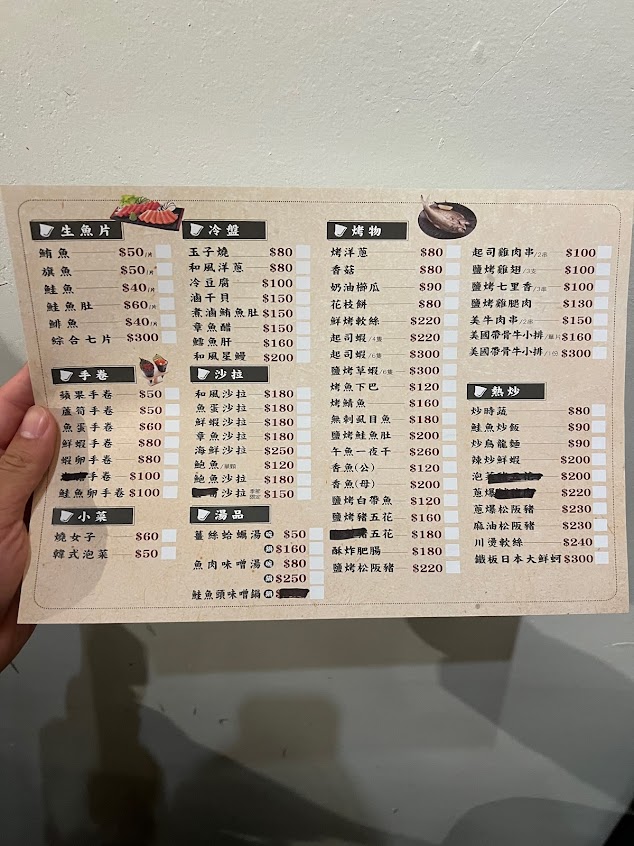 生魚片
鮪魚 $50/片
旗魚 $50/片
鮭魚 $40/片
鮭魚肚 $60/片
鯡魚 $40/片
綜合七片 $300
手卷
蘋果手卷 $50
蘆筍手卷 $50
魚蛋手卷 $60
鮮蝦手卷 $80
蝦卵手卷 $80
手卷 $100
鮭魚卵手卷 $100
小菜
燒女子 $60
韓式泡菜 $50
冷盤
玉子燒 $80
和風洋蔥 $80
冷豆腐 $100
滷干貝 $150
煮滷鮪魚肚 $150
章魚醋 $150
鱈魚肝 $160
和風星鰻 $200
沙拉
和風沙拉 $180
魚蛋沙拉 $180
鮮蝦沙拉 $180
章魚沙拉 $180
海鮮沙拉 $250
鮑魚/單顆 $120
鮑魚沙拉 $180
沙拉 季節限定 $150
湯品
薑絲蛤蠣湯 碗 $50
鍋 $160
魚肉味噌湯 碗 $80
鍋 $250
鮭魚頭味噌鍋 鍋
烤物
烤洋蔥 $80
香菇 $80
奶油櫛瓜 $90
花枝餅 $80
鮮烤軟絲 $220
起司蝦/4隻 $220
起司蝦/6隻 $300
鹽烤草蝦/6隻 $300
烤魚下巴 $120
烤鯖魚 $160
無刺虱目魚 $180
鹽烤鮭魚肚 $200
午魚一夜干 $260
香魚(公) $120
香魚(母) $200
鹽烤白帶魚 $120
鹽烤豬五花 $160
五花 $180
酥炸肥腸 $180
鹽烤松阪豬 $220
起司雞肉串/2串 $100
鹽烤雞翅/3支 $100
鹽烤七里香/3串 $100
鹽烤雞腿肉 $130
美牛肉串/2串 $150
美國帶骨牛小排/單片 $160
美國帶骨牛小排/1份 $300
熱炒
炒時蔬 $80
鮭魚炒飯 $90
炒烏龍麵 $90
辣炒鮮蝦 $200
泡 $200
蔥爆 $220
蔥爆松阪豬 $230
麻油松阪豬 $230
川燙軟絲 $240
鐵板日本大鮮蚵 $300